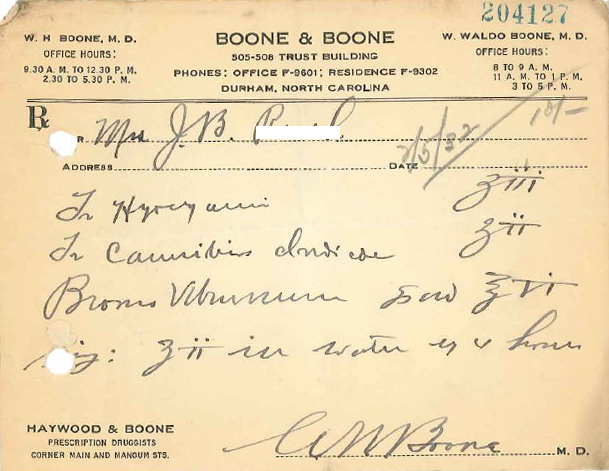 204127
W. H. BOONE, M. D.
OFFICE HOURS:
9.30 A. M. TO 12.30 P. M.
2.30 TO 5.30 P. M.
BOONE & BOONE
505-508 TRUST BUILDING
PHONES: OFFICE F-9601; RESIDENCE F-9302
DURHAM, NORTH CAROLINA
W. WALDO BOONE, M. D.
OFFICE HOURS:
8 TO 9 A. M.
11 A. M. TO 1 P. M.
3 TO 5 P. M.
℞
R Mrs J. B.
ADDRESS DATE /5/32
Tr Hyoscyami ʒiii
Tr Cannibis Indicae ʒii
Bromo Viburnum ʒvi
Sig: ʒii in water hours
W H Boone M. D.
HAYWOOD & BOONE
PRESCRIPTION DRUGGISTS
CORNER MAIN AND MANGUM STS.